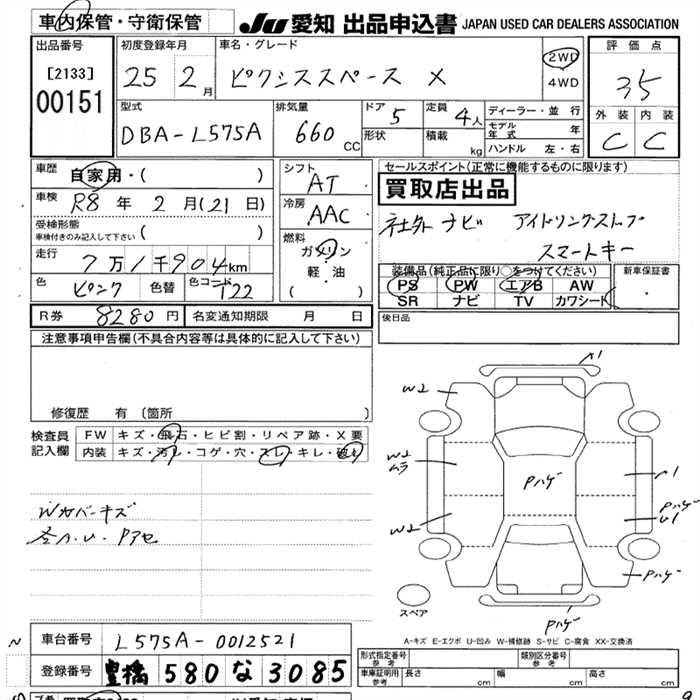 車内保管・守衛保管 JU 愛知 出品申込書 JAPAN USED CAR DEALERS ASSOCIATION
出品番号 初度登録年月 車名・グレード 評価点
[2133] 25 2月 ピクシススペース X 2WD 4WD 35
00151
型式 排気量 ドア 5 定員 4人 ディーラー・並行 外装 内装
DBA-L575A 660 CC 形状 積載 kg モデル年式 年 C C
ハンドル 左・右
車歴 自家用・( ) シフト AT セールスポイント(正常に機能するものに限ります)
車検 R8年 2月(21日) 冷房 AAC 買取店出品
受検形態 ( ) 社外ナビ アイドリングストップ
車検付きのみ記入して下さい 燃料 ガソリン スマートキー
走行 7万1千904km 軽・油
色 ピンク 色替 色コード T22 ( ) 装備品(純正品に限り○をつけてください) 新車保証書
PS PW エアB AW
SR ナビ TV カワシート
R券 8280円 名変通知期限 月 日 後日品
注意事項申告欄(不具合内容等は具体的に記入して下さい)
修復歴 有 [箇所 ]
検査員 FW キズ・飛石・ヒビ割・リペア跡・X要
記入欄 内装 キズ・汚レ・コゲ・穴・スレ・キレ・破レ
Wカバーキズ
W2
W2
ムラ
W2
Pハゲ
Pハゲ
U1
Pハゲ
Pハゲ
スペア
A-キズ E-エクボ U-凹み W-補修跡 S-サビ C-腐食 XX-交換済
車台番号 L575A-0012521
登録番号 豊橋 580 な 3085
形式指定番号 参考 類別区分番号 参考
車庫証明用 参考 長さ cm 幅 cm 高さ cm